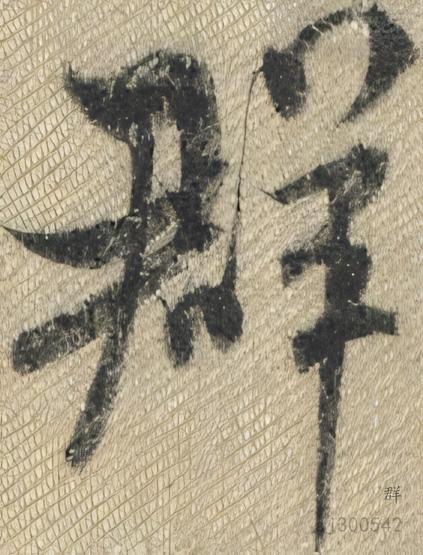 群
群
j300542